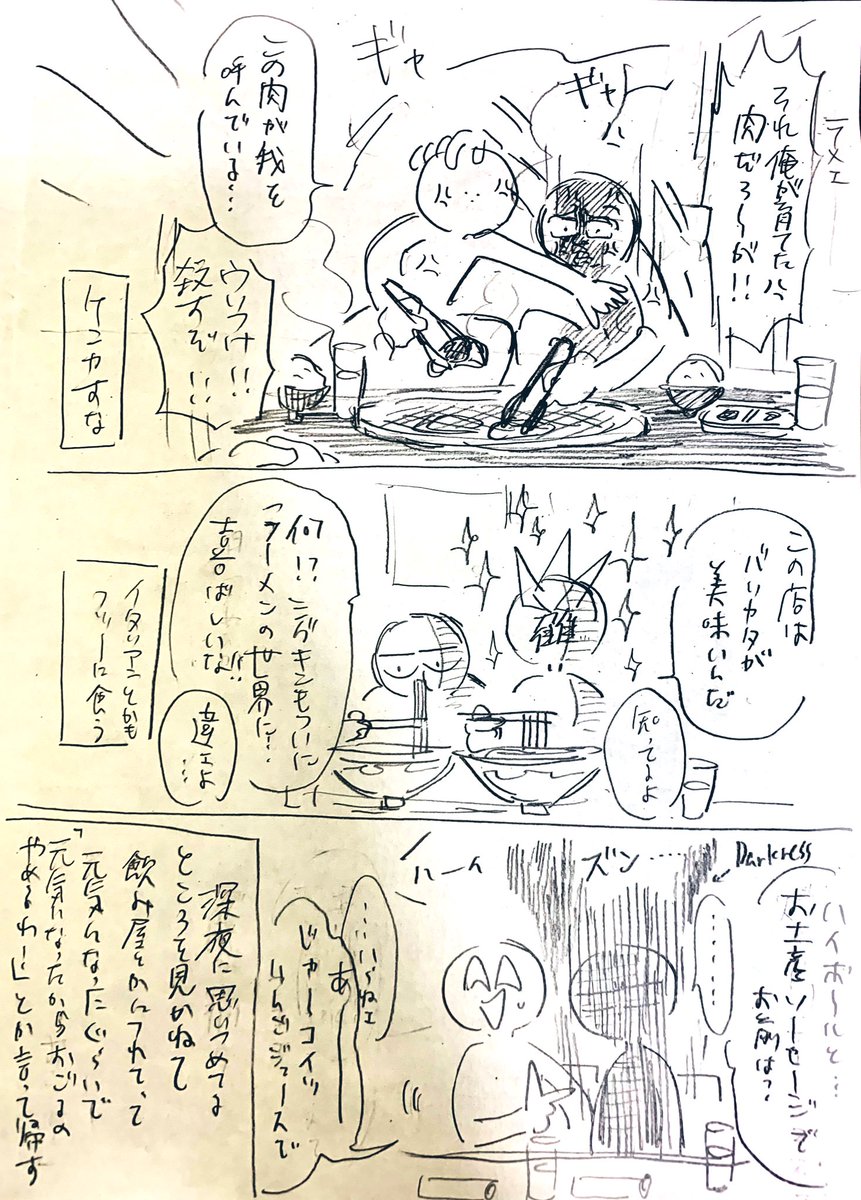 テメェ
それ俺が育てた
肉だろーがハ!!
ギャー
ギャー
この肉が我を
呼んでいる…
ウルっせ!!
殺すぞ!!
ケンカすな
この店は
バリカタが
美味いんだ
知ってるよ
何!?ニブキンもついに
ラーメンの世界に…
喜ばしいな!!
違ェよ
…
イタリアンとかも
フツーに食う
Darkness
ハイボールと…
お土産ソーセージで
お名前は?
………
ズン……
ハーイ
……いらねェ
あ
じゃーコイツ
りんごジュースで
深夜に思いつめてる
ところを見かねて
飲み屋とかにつれてって
元気んなったぐらいで
「元気になったからおごるの
やめるわー」とか言って帰す